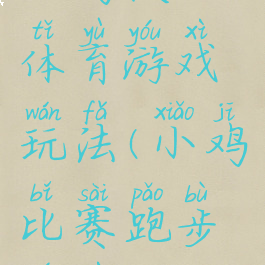 tǐ yù yóu xì
体育游戏
wán fǎ xiǎo jī
玩法(小鸡
bǐ sài pǎo bù
比赛跑步